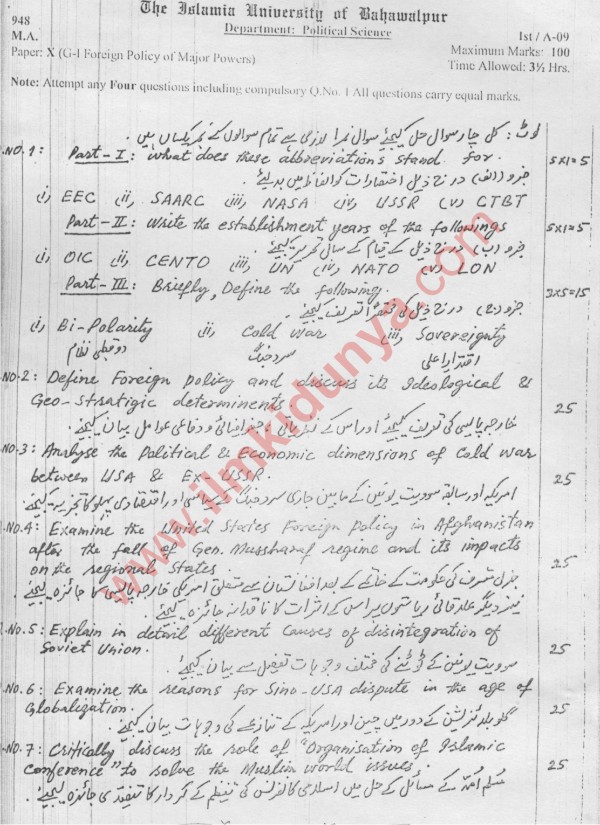 The Islamia University of Bahawalpur
Department: Political Science
948
M.A.
1st / A-09
Paper: X (G-I Foreign Policy of Major Powers)
Maximum Marks: 100
Time Allowed: 3½ Hrs.
Note: Attempt any Four questions including compulsory Q.No. 1 All questions carry equal marks.
نوٹ: کل چار سوال حل کیجئے سوال نمبرا لازمی ہے تمام سوالوں کے نمبر یکساں ہیں
.NO.1: Part-I: What does these abbreviation's stand for. 5x1=5
جزو (الف) درج ذیل اختصارات کو الفاظ میں بدلیے
i) EEC ii) SAARC iii) NASA iv) USSR (v) CTBT
Part-II: Write the establishment years of the followings 5x1=5
جزو (ب) درج ذیل کے قیام کے سال تحریر کیجئے
i) OIC ii) CENTO iii) UN (iv) NATO (v) LON
Part-III: Briefly, Define the following. 3x5=15
جزو (ج) درج ذیل کی مختصر تعریف کیجئے
i) Bi-Polarity ii) Cold War iii) Sovereignty
دو قطبی نظام سرد جنگ اقتدار اعلی
.NO.2: Define Foreign policy and discuss its Ideological &
Geo-stratigic determinents. 25
خارجہ پالیسی کی تعریف کیجئے اور اس کے نظریاتی، جغرافیائی و دفاعی عوامل بیان کیجئے
.NO.3: Analyse the Political & Economic dimensions of Cold War
between USA & Ex-USSR. 25
امریکہ اور سابقہ سوویت یونین کے مابین جاری سرد جنگ کے سیاسی اور اقتصادی پہلو کا تجزیہ کیجئے
.NO.4: Examine the United States Foreign Policy in Afghanistan
after the fall of Gen. Mussharaf regime and its impacts
on the regional states. 25
جنرل مشرف کی حکومت کے خاتمے کے بعد افغانستان سے متعلق امریکی خارجہ پالیسی کا جائزہ لیجئے
نیز دیگر علاقائی ریاستوں پر اس کے اثرات کا ناقدانہ جائزہ لیجئے
.No.5: Explain in detail different causes of disintegration of
Soviet Union. 25
سوویت یونین کے ٹوٹنے کی مختلف وجوہات تفصیل سے بیان کیجئے
.NO.6: Examine the reasons for Sino-USA dispute in the age of
Globalization. 25
گلوبلائزیشن کے دور میں چین اور امریکہ کے تنازعے کی وجوہات بیان کیجئے
.NO.7: Critically discuss the role of "Organisation of Islamic
Conference" to solve the Muslim world issues. 25
مسلم اُمّہ کے مسائل کے حل میں اسلامی کانفرنس کی تنظیم کے کردار کا تنقیدی جائزہ لیجئے
www.ilmkidunya.com